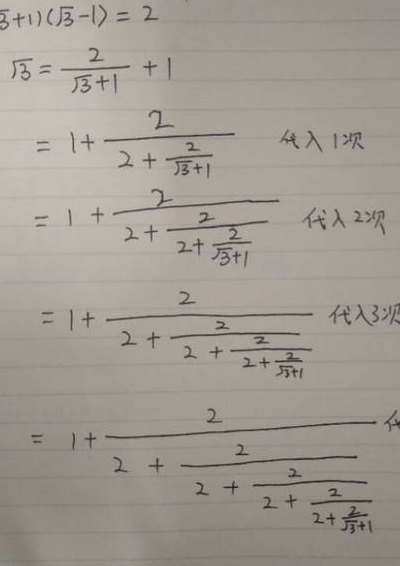 √3+1)(√3-1) = 2
√3 = 2/(√3+1) + 1
= 1 + 2/(2 + 2/(√3+1)) 代入1次
= 1 + 2/(2 + 2/(2 + 2/(√3+1))) 代入2次
= 1 + 2/(2 + 2/(2 + 2/(2 + 2/(√3+1)))) 代入3次
= 1 + 2/(2 + 2/(2 + 2/(2 + 2/(2 + 2/(√3+1)))))